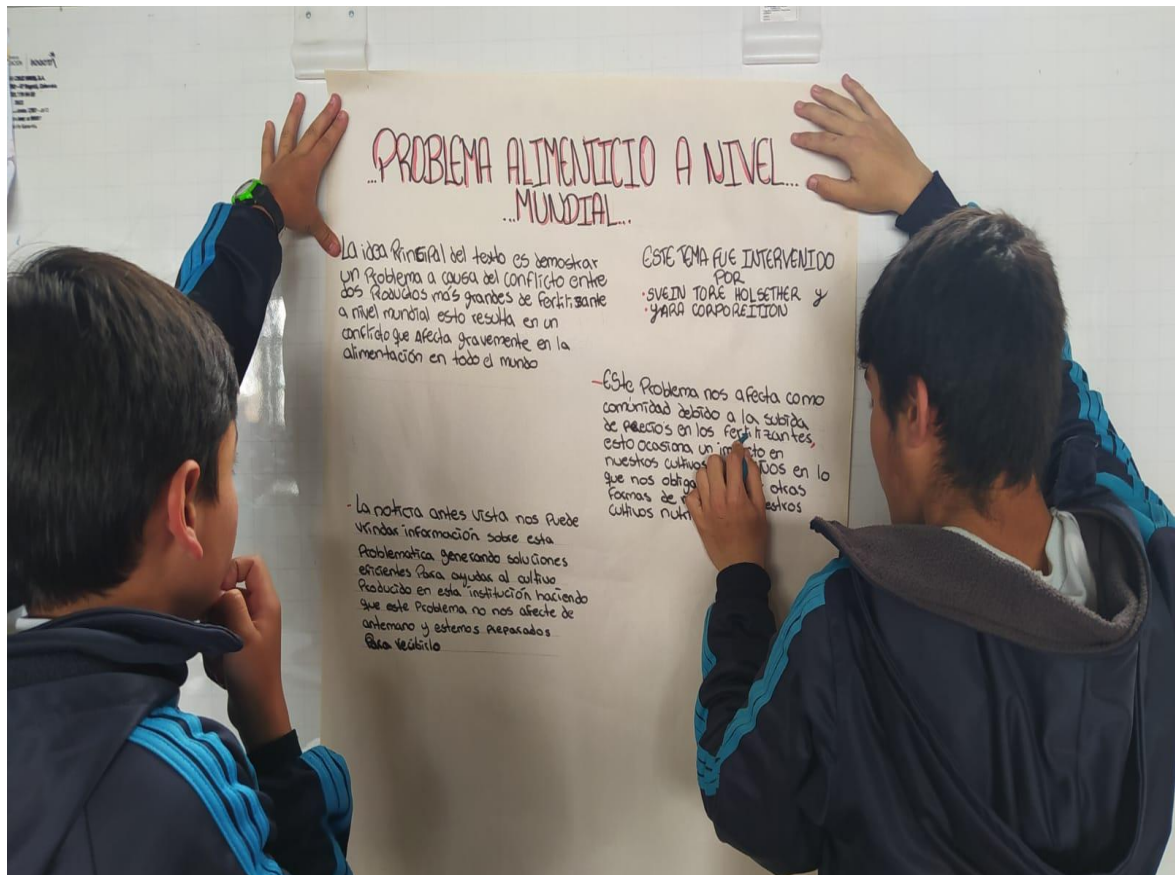 BOGOTÁ
...PROBLEMA ALIMENTICIO A NIVEL...
...MUNDIAL...
La idea Principal del texto es demostrar
un Problema a causa del conflicto entre
dos Productos más grandes de Fertilizante
a nivel mundial esto resulta en un
conflicto que Afecta gravemente en la
alimentación en todo el mundo
ESTE TEMA FUE INTERVENIDO
POR
• SVEIN TORE HOLSETHER y
• YARA CORPOREITION
- Este Problema nos afecta como
comunidad debido a la subida
de precios en los fertilizantes,
esto ocasiona un
nuestros cultivos en lo
que nos obliga otras
formas de
cultivos
- La noticia antes vista nos Puede
vrindar información sobre esta
Problematica generando soluciones
eficientes Para ayudar al cultivo
Producido en esta institución haciendo
que este Problema no nos afecte de
antemano y estemos preparados
Para recibirlo